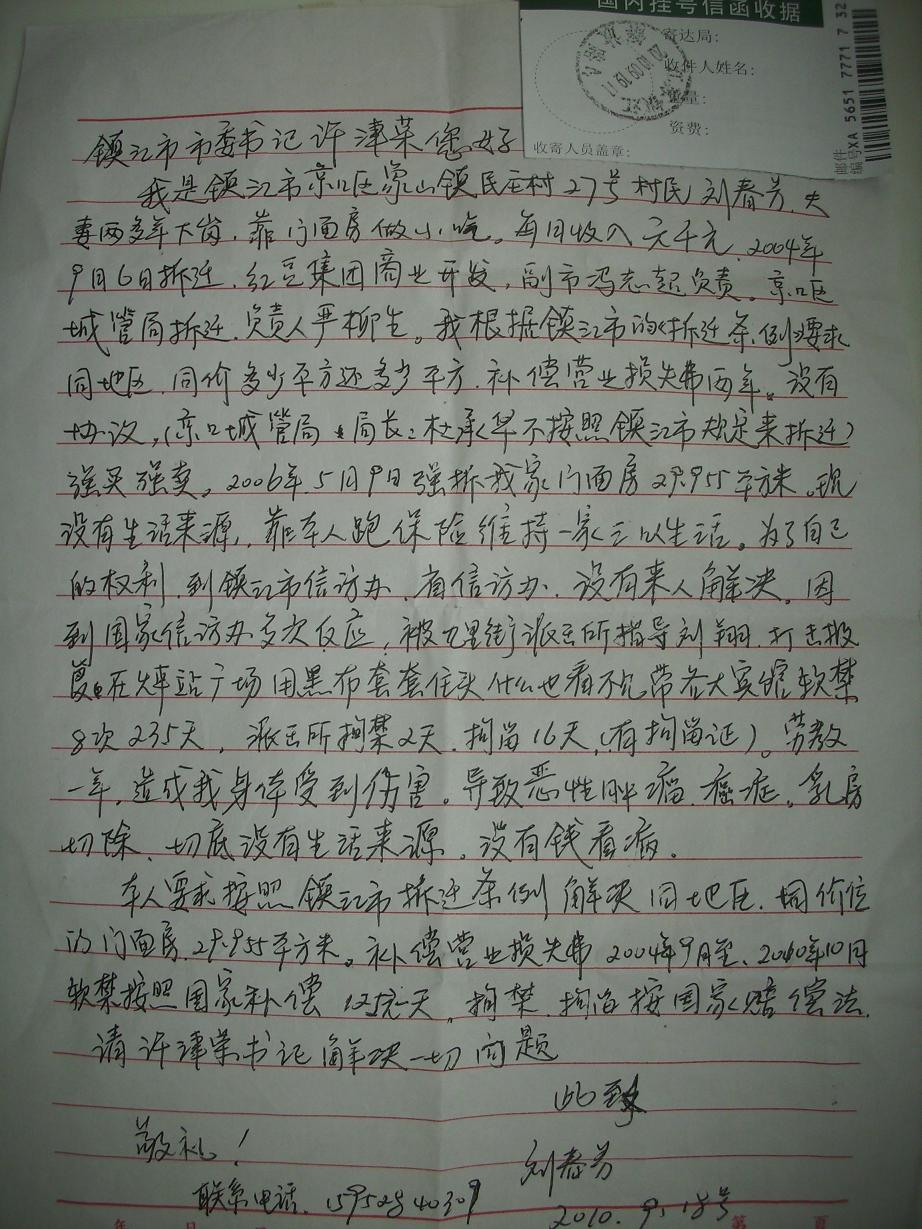 国内挂号信函收据
寄达局:
收件人姓名:
重量:
资费:
收寄人员盖章:
邮件
编号XA 5651 7771 7 32
镇江市市委书记许津荣您好
我是镇江市京口区象山镇民主村27号村民刘春芳.夫
妻两多年下岗.靠门面房做小吃。每月收入 元千元.2004年
9月6日拆迁.红豆集团商业开发,副市冯志起负责。京口区
城管局拆迁.负责人严柳生。我根据镇江市的《拆迁条例》要求
同地区.同价多少平方还多少平方.补偿营业损失费两年。没有
协议,(京口城管局局长:杜承早不按照镇江市规定来拆迁)
强买强卖。2006年.5月9日强拆我家门面房29.955平方米。现
没有生活来源,靠本人跑保险维持一家三口生活。为了自己
的权利.到镇江市信访办.省信访办.没有来人解决。因
到国家信访办多次反应,被 派出所指导刘翔.打击报
复在火车站广场用黑布套套住头什么也看不见带各大宾馆软禁
8次235天,派出所拘禁2天.拘留16天,(有拘留证)。劳教
一年,造成我身体受到伤害。导致恶性肿瘤.癌症。乳房
切除、切底没有生活来源。没有钱看病。
本人要求按照镇江市拆迁条例解决同地区.同价位
的门面房.29.955平方米。补偿营业损失费 2004年9月至、2010年10月
软禁按照国家补偿 125元一天。拘禁.拘留按国家赔偿法.
请许津荣书记解决一切问题
此致
敬礼!
刘春芳
联系电话.15952840309
2010.9.18号
年 月 日 第 页